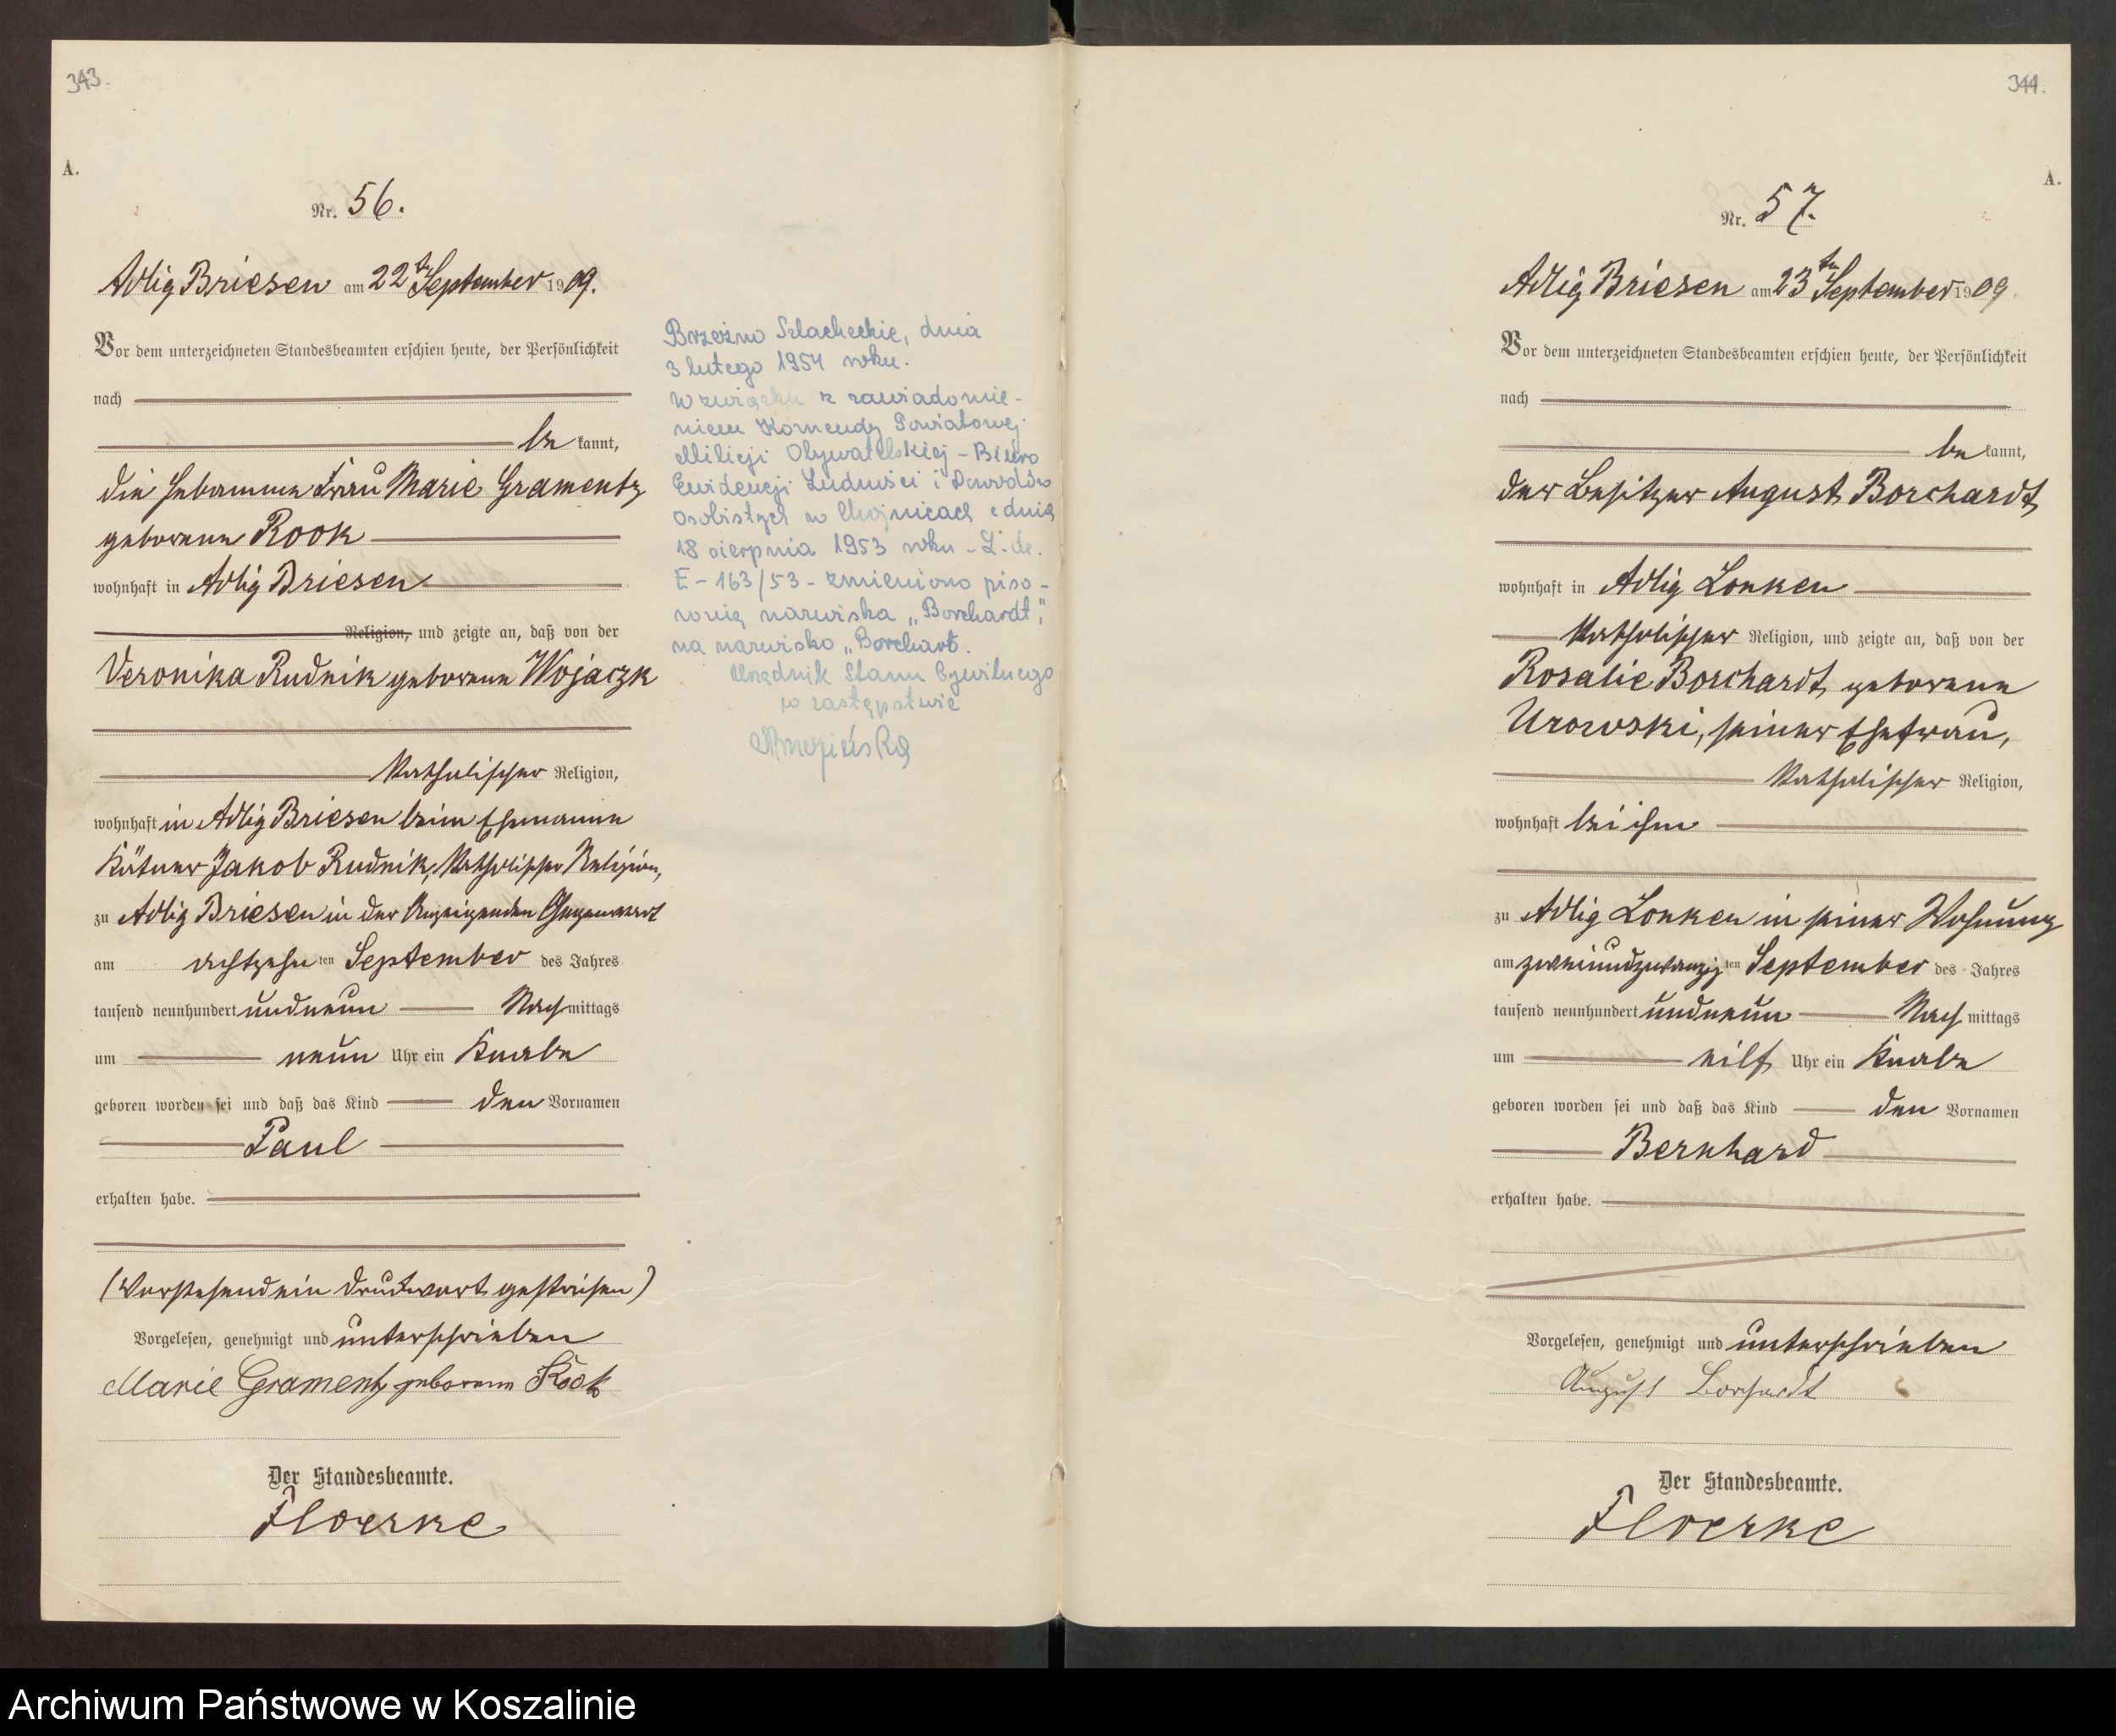 343.
A.
Nr. 56.
Adlig Briesen am 22ten September 1909.
Vor dem unterzeichneten Standesbeamten erschien heute, der Persönlichkeit
nach
be kannt,
die Hebamme Frau Marie Gramentz
geborene Rook
wohnhaft in Adlig Briesen
Religion, und zeigte an, daß von der
Veronika Rudnik geborene Wojaczk
katholischer Religion,
wohnhaft in Adlig Briesen beim Ehemanne
Kätner Jakob Rudnik, katholischer Religion,
zu Adlig Briesen in der Anzeigenden Gegenwart
am achtzehn ten September des Jahres
tausend neunhundert undneun Nach mittags
um neun Uhr ein Knabe
geboren worden sei und daß das Kind den Vornamen
Paul
erhalten habe.
(Vorstehend ein Druckwort gestrichen)
Vorgelesen, genehmigt und unterschrieben
Marie Gramentz geborene Rook
Der Standesbeamte.
Floerke
Brzeźno Szlacheckie, dnia
3 lutego 1954 roku.
W związku z zawiadomie-
niem Komendy Powiatowej
Milicji Obywatelskiej - Biuro
Ewidencji Ludności i Dowodów
Osobistych w Chojnicach z dnia
18 sierpnia 1953 roku - L. dz.
E - 163/53 - zmieniono piso-
wnię nazwiska „Borchardt",
na nazwisko „Borchart.
Urzędnik Stanu Cywilnego
w zastępstwie
344.
A.
Nr. 57.
Adlig Briesen am 23ten September 1909
Vor dem unterzeichneten Standesbeamten erschien heute, der Persönlichkeit
nach
be kannt,
der Besitzer August Borchardt
wohnhaft in Adlig Lonken
katholischer Religion, und zeigte an, daß von der
Rosalie Borchardt geborene
Urowski, seiner Ehefrau,
katholischer Religion,
wohnhaft bei ihm
zu Adlig Lonken in seiner Wohnung
am zweiundzwanzig ten September des Jahres
tausend neunhundert undneun Nach mittags
um eilf Uhr ein Knabe
geboren worden sei und daß das Kind den Vornamen
Bernhard
erhalten habe.
Vorgelesen, genehmigt und unterschrieben
August Borchardt
Der Standesbeamte.
Floerke
Archiwum Państwowe w Koszalinie